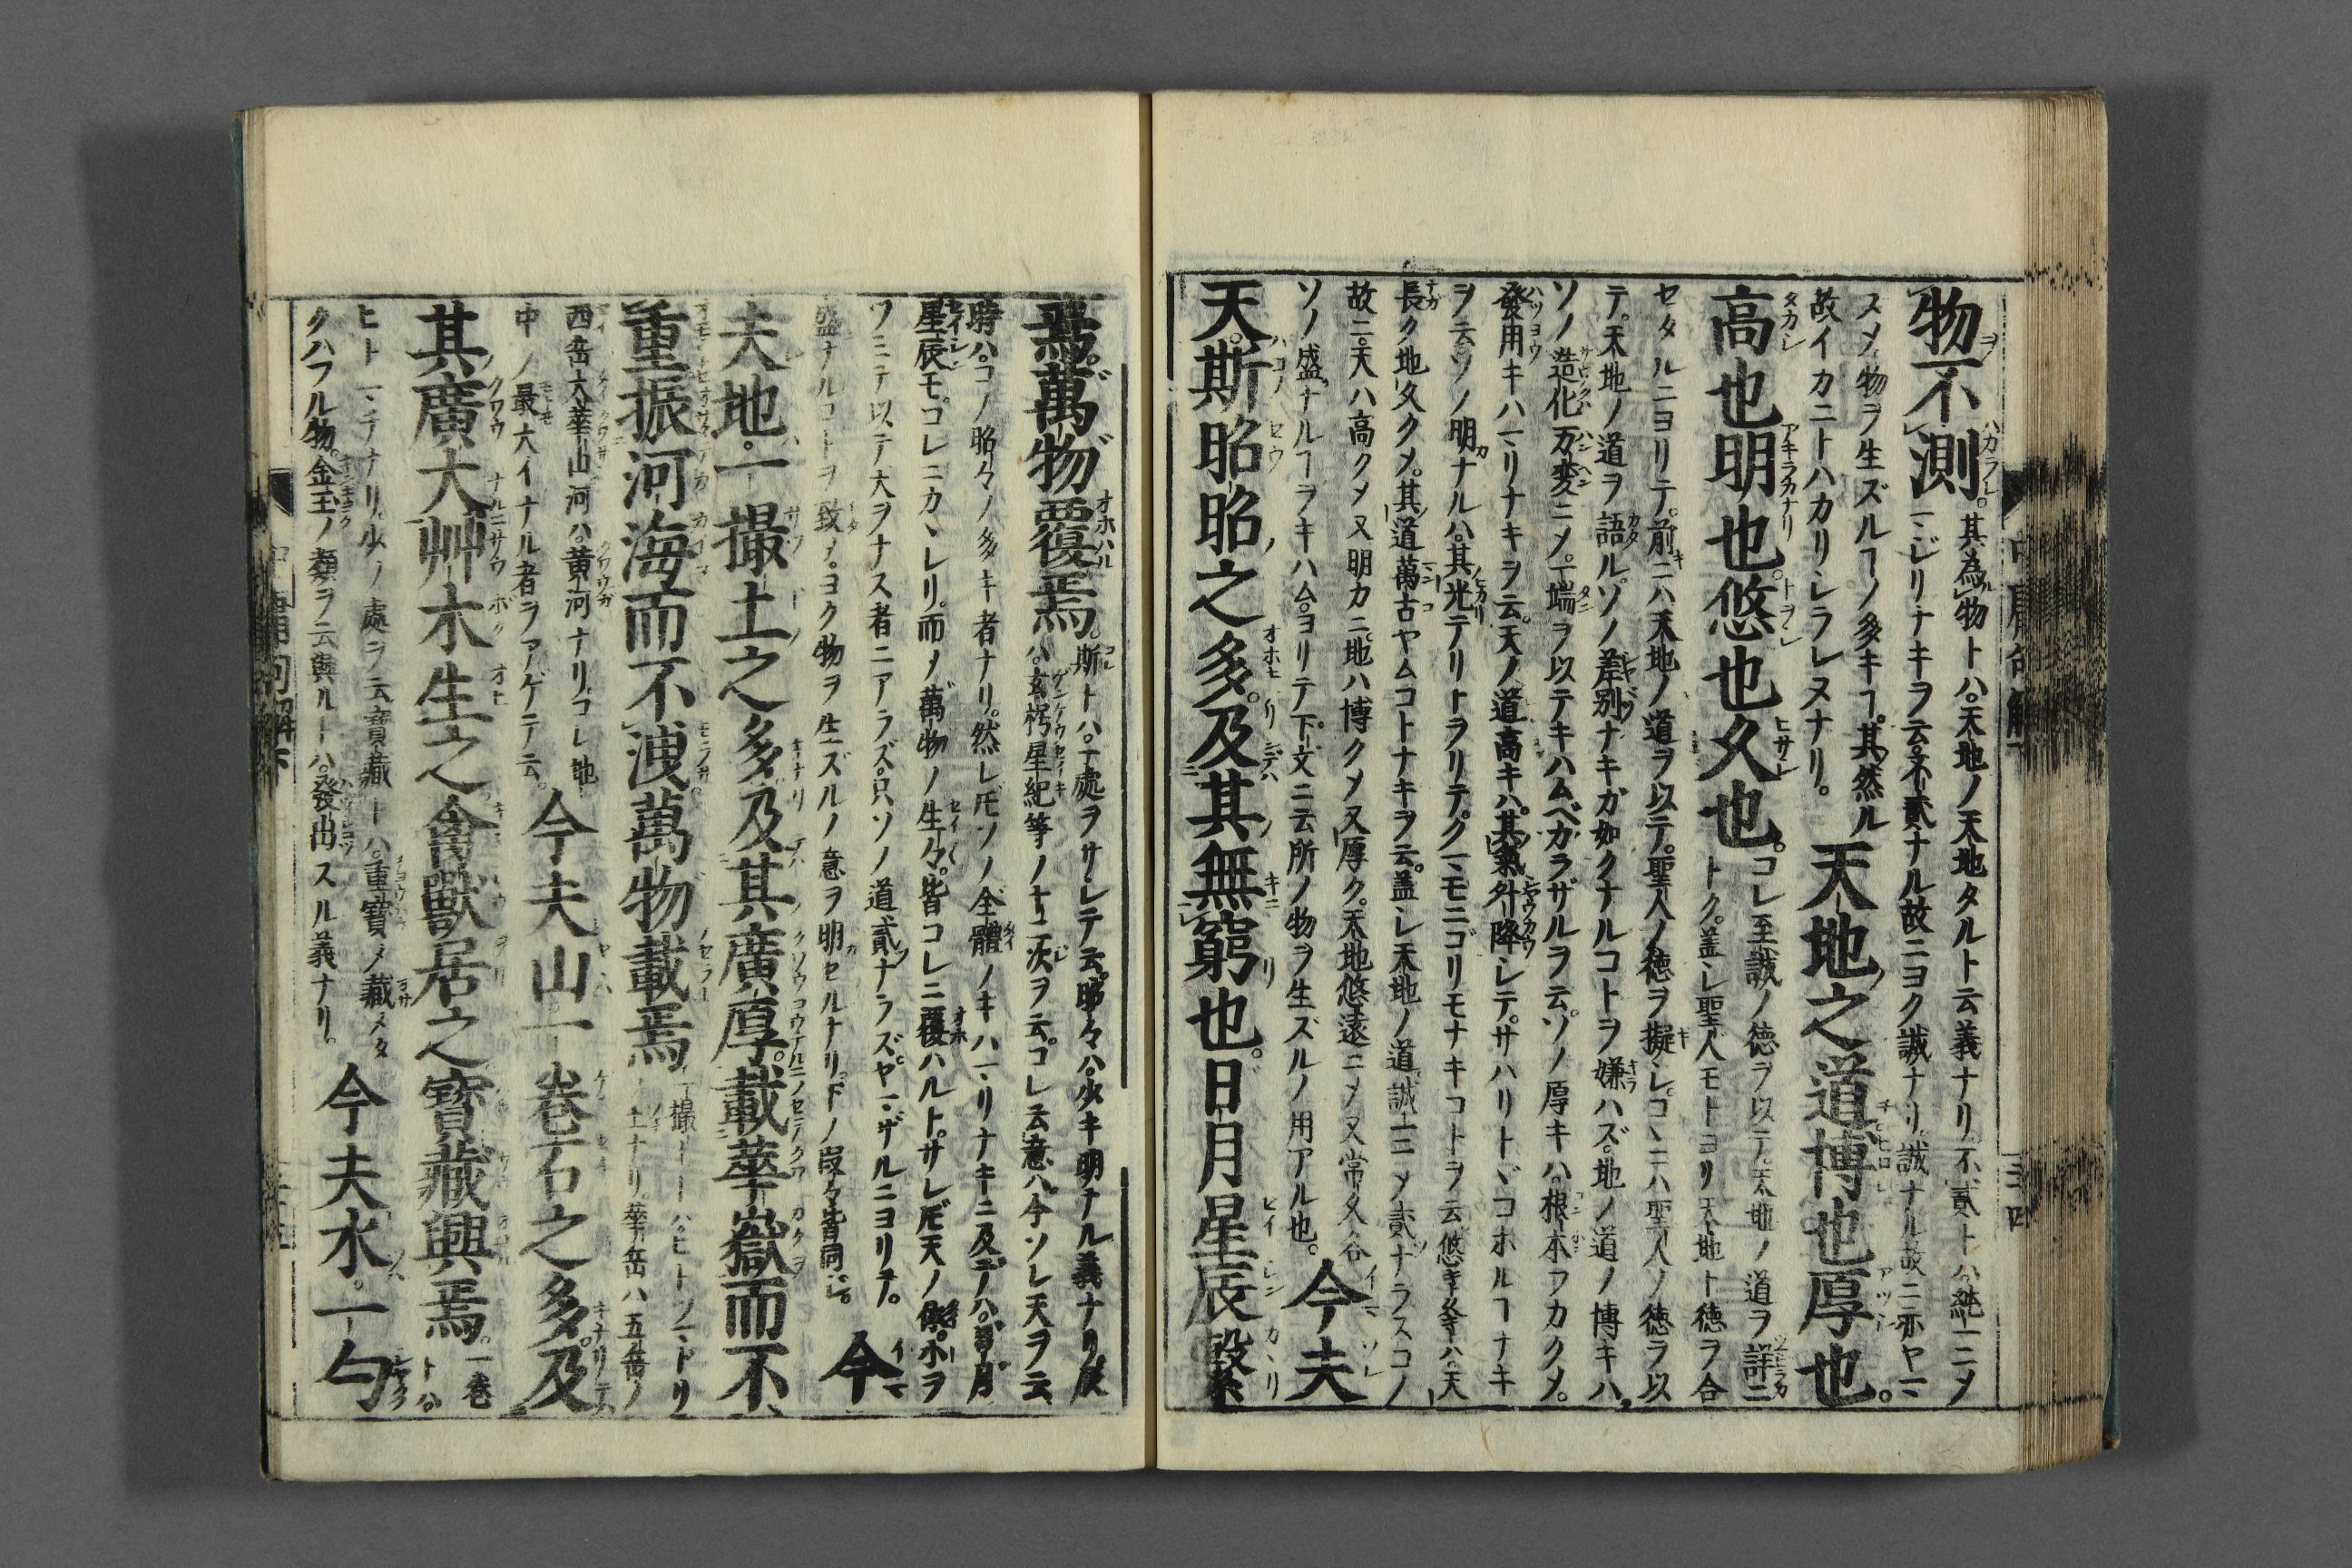 物不測。其為物トハ。天地ノ天地タルト云義ナリ不貳トハ純一ニメ
マジリナキヲ云不貳ナル故ニヨク誠ナリ誠ナル故ニ亦ヤマ
スメ物ヲ生ズルヿノ多キヿ其然ル
故イカニトハカリシラレヌナリ。天地之道博也厚也。
高也明也悠也久也。コレ至誠ノ徳ヲ以テ。天地ノ道ヲ詳ニ
トク。蓋シ聖人モトヨリ天地ト徳ヲ合
セタルニヨリテ。前ニハ天地ノ道ヲ以テ。聖人ノ徳ヲ擬シ。コヽニハ聖人ノ徳ヲ以
テ。天地ノ道ヲ語ル。ソノ差別ナキガ如クナルコトヲ嫌ハズ。地ノ道ノ博キハ。
ソノ造化万変ニメ。一端ヲ以テキハムベカラザルヲ云。ソノ厚キハ。根本フカクメ。
發用キハマリナキヲ云。天ノ道高キハ。其氣升降シテ。サハリトヾコホルヿナキ
ヲ云ソノ明ナルハ。其光テリトヲリテ。クマモニゴリモナキコトヲ云悠キ久キハ天
長ク地久クメ。其道萬古ヤムコトナキヲ云。蓋シ天地ノ道誠一ニメ貳ナラスコノ
故ニ。天ハ高クメ又明カニ。地ハ博クメ又厚ク。天地悠遠ニメ又常久各
ソノ盛ナルヿヲキハム。ヨリテ下文ニ云所ノ物ヲ生ズルノ用アル也。今夫
天。斯昭昭之多。及其無窮也。日月星辰繫
焉。萬物覆焉。斯トハ。一處ヲサシテ云。昭々ハ。少キ明ナル義ナリ辰
ハ。玄枵星紀等ノ十二次ヲ云。コレ云意ハ今ソレ天ヲ云
時ハ。コノ昭々ノ多キ者ナリ。然レ𪜈ソノ全體ノキハマリナキニ及テハ。日月
星辰モ。コレニカヽレリ。而メ萬物ノ生々。皆コレニ覆ハルト。サレ𪜈天ノ
ワニテ以テ大ヲナス者ニアラズ。只ソノ道貳ナラズ。ヤマザルニヨリテ。
盛ナルコトヲ致メ。ヨク物ヲ生ズルノ意ヲ明セルナリ下ノ段々皆同ジ。今
夫地。一撮土之多。及其廣厚。載華嶽而不
重振河海而不洩萬物載焉一撮トハ。ヒトツマドリ
土ナリ。華岳ハ五岳ノ
西岳大華山河ハ。黄河ナリ。コレ地
中ノ最大イナル者ヲアゲテ云。今夫山一卷石之多。及
其廣大艸木生之禽獸居之寶藏興焉。一卷
トハ。
ヒトマチナリ。少ノ處ヲ云寶藏トハ。重寶メ藏メタ
クハフル物。金玉ノ類ヲ云興ルトハ。發出スル義ナリ。今夫水。一勺